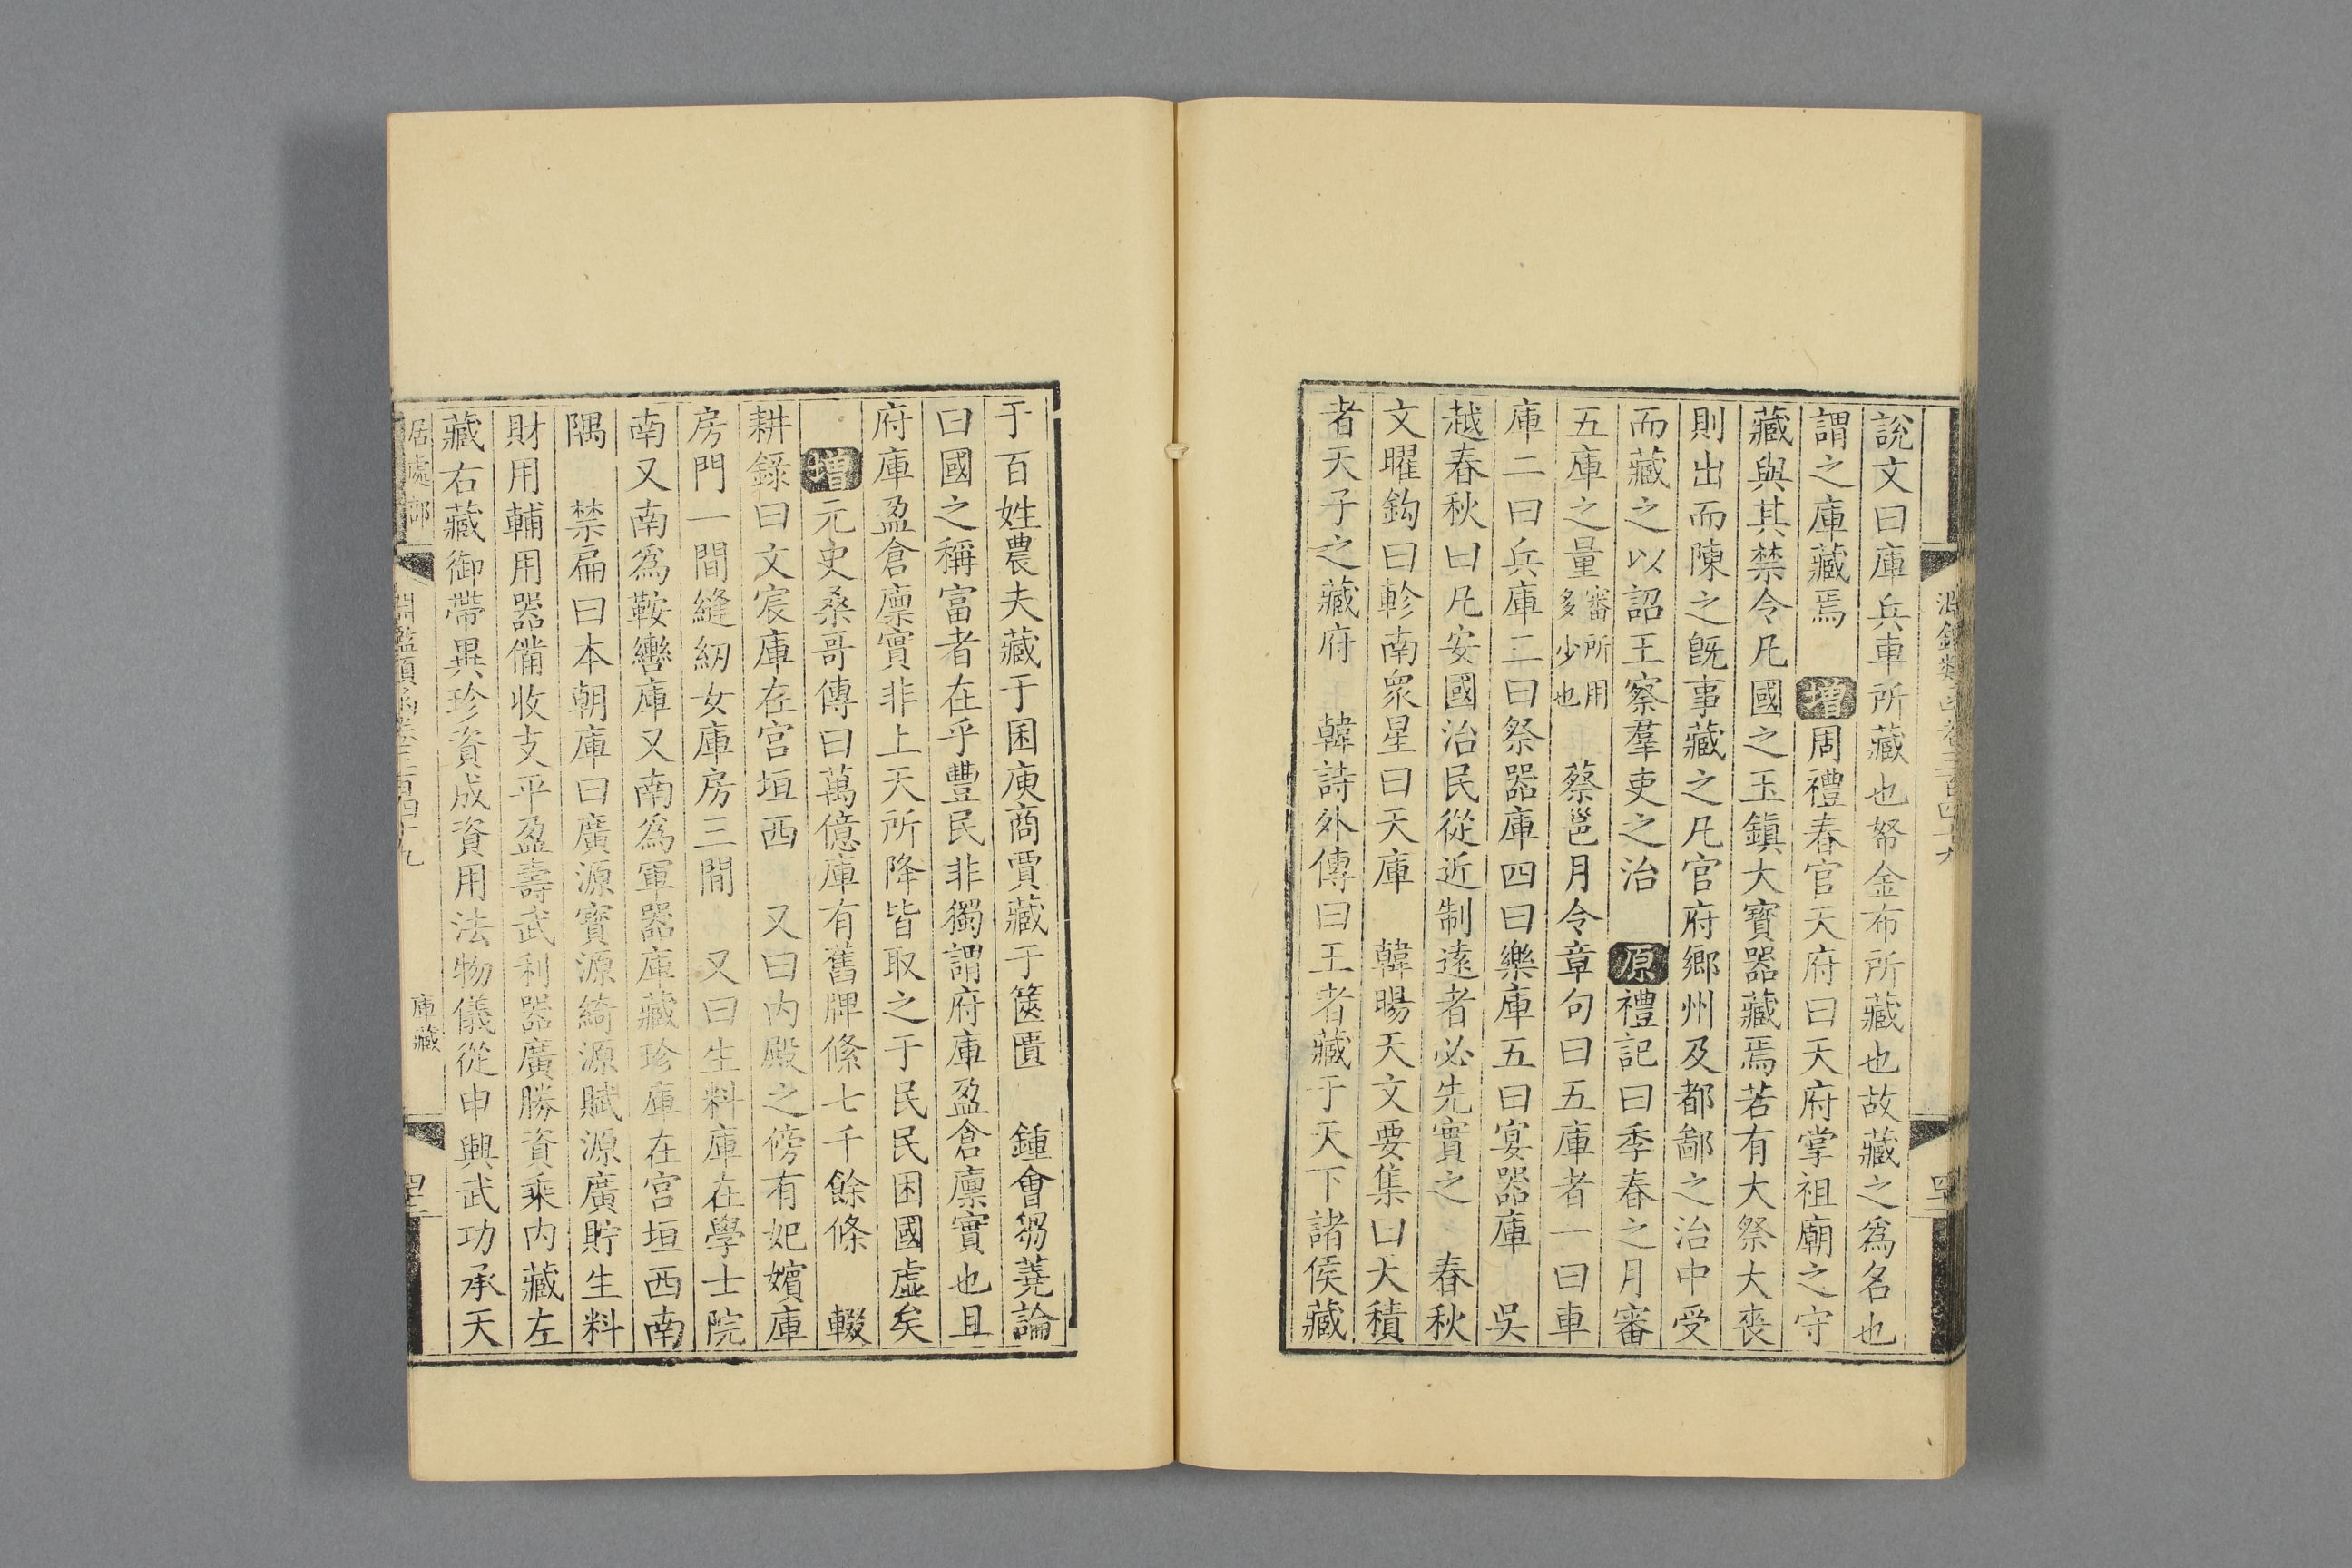 說文曰庫兵車所藏也帑金布所藏也故藏之爲名也
謂之庫藏焉　增周禮春官天府曰天府掌祖廟之守
藏與其禁令凡國之玉鎭大寶器藏焉若有大祭大喪
則出而陳之旣事藏之凡官府鄉州及都鄙之治中受
而藏之以詔王察羣吏之治　原禮記曰季春之月審
五庫之量審所用多少也　蔡邕月令章句曰五庫者一曰車
庫二曰兵庫三曰祭器庫四曰樂庫五曰宴器庫　吳
越春秋曰凡安國治民從近制遠者必先實之　春秋
文曜鈎曰軫南衆星曰天庫　韓暘天文要集曰天積
者天子之藏府　韓詩外傳曰王者藏于天下諸侯藏
于百姓農夫藏于囷庾商賈藏于篋匱　鍾會芻蕘論
曰國之稱富者在乎豐民非獨謂府庫盈倉廩實也且
府庫盈倉廩實非上天所降皆取之于民民困國虛矣
增元史桑哥傳曰萬億庫有舊牌條七千餘條　輟
耕錄曰文宸庫在宮垣西　又曰内殿之傍有妃嬪庫
房門一間縫紉女庫房三間　又曰生料庫在學士院
南又南爲鞍轡庫又南爲軍器庫藏珍庫在宮垣西南
隅　禁扁曰本朝庫曰廣源寶源綺源賦源廣貯生料
財用輔用器備收支平盈壽武利器廣勝資乘内藏左
藏右藏御帶異珍資成資用法物儀從中興武功承天
居處部
淵鑑類函卷三百四十九
庫藏